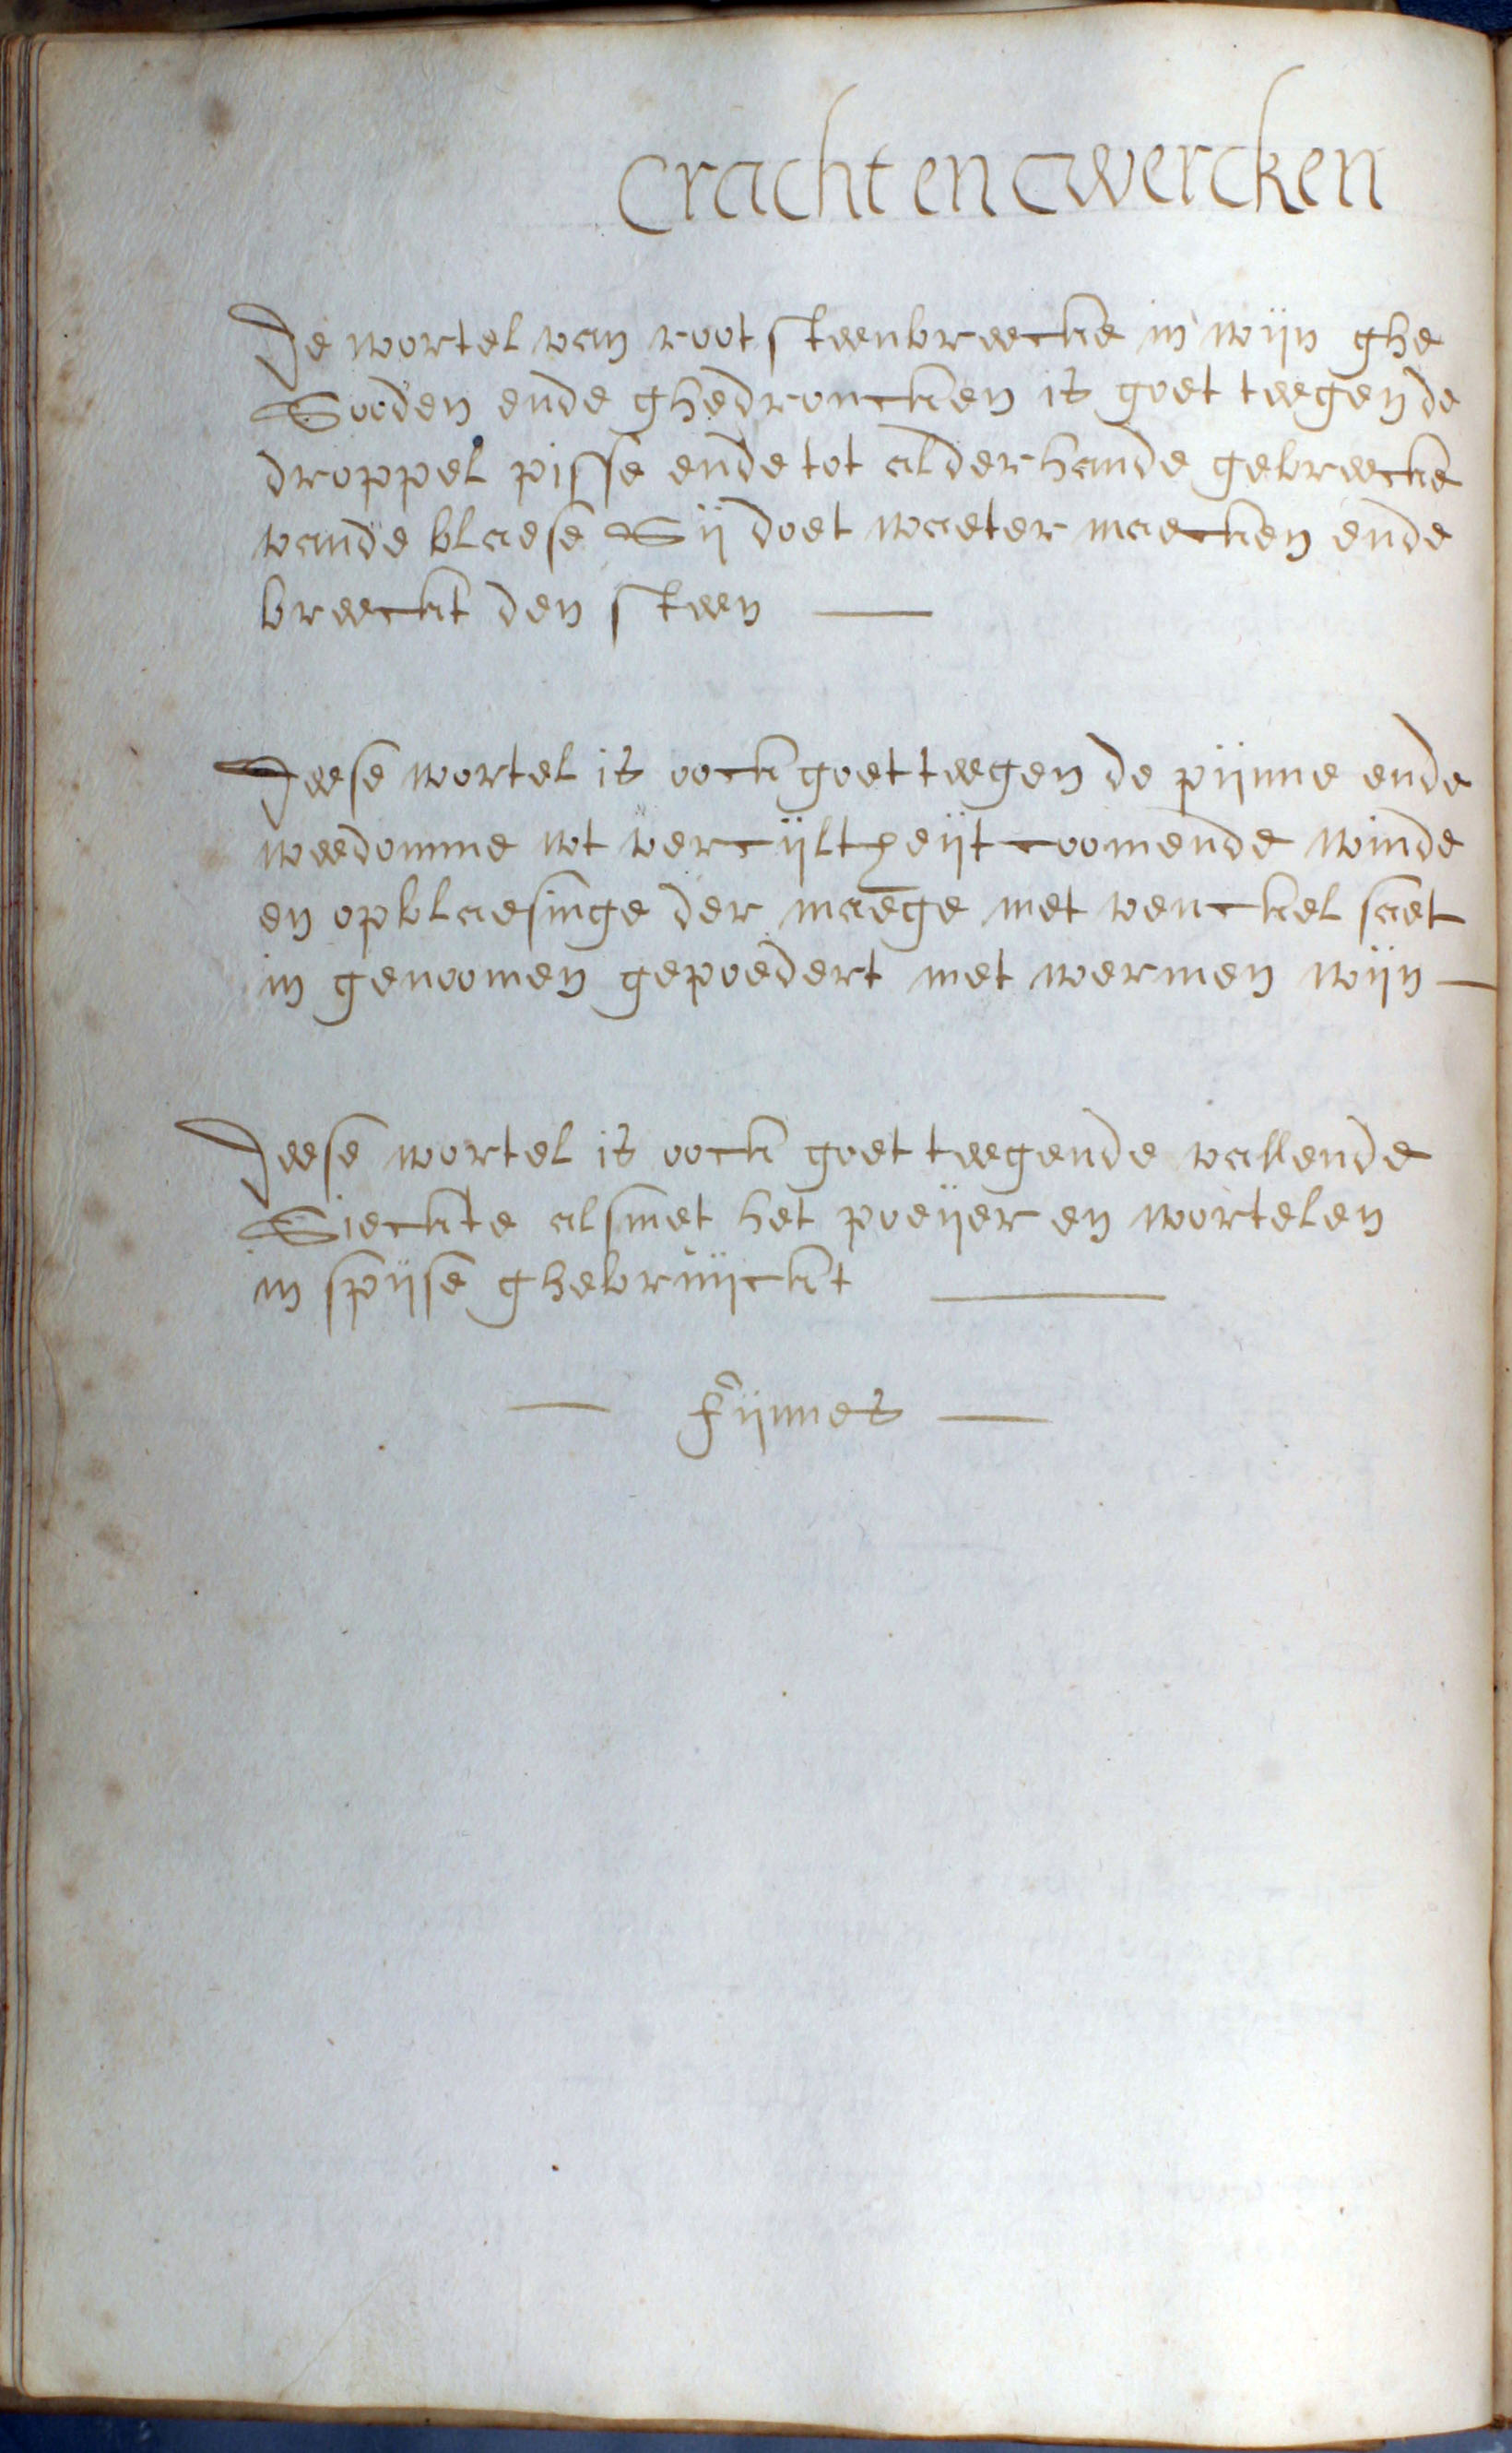 Cracht en Wercken
De wortel van root steenbreecke in wijn ghe
Sooden ende ghedroncken is goet teegen de
droppel pisse ende tot alderhande gebreecke
vande blaese Sij doet waeter maecken ende
breeckt den steen —
Deese wortel is oock goet teegen de pijnne ende
weedomme wt vercijltheijt coomende winde
en opblaesinge der maege met venckel saet
in genoomen gepoedert met wermen wijn —
Deese wortel is oock goet teegende vallende
Sieckte alsmet het poeijer en wortelen
in spijse ghebruijckt —
— Fijnnes —